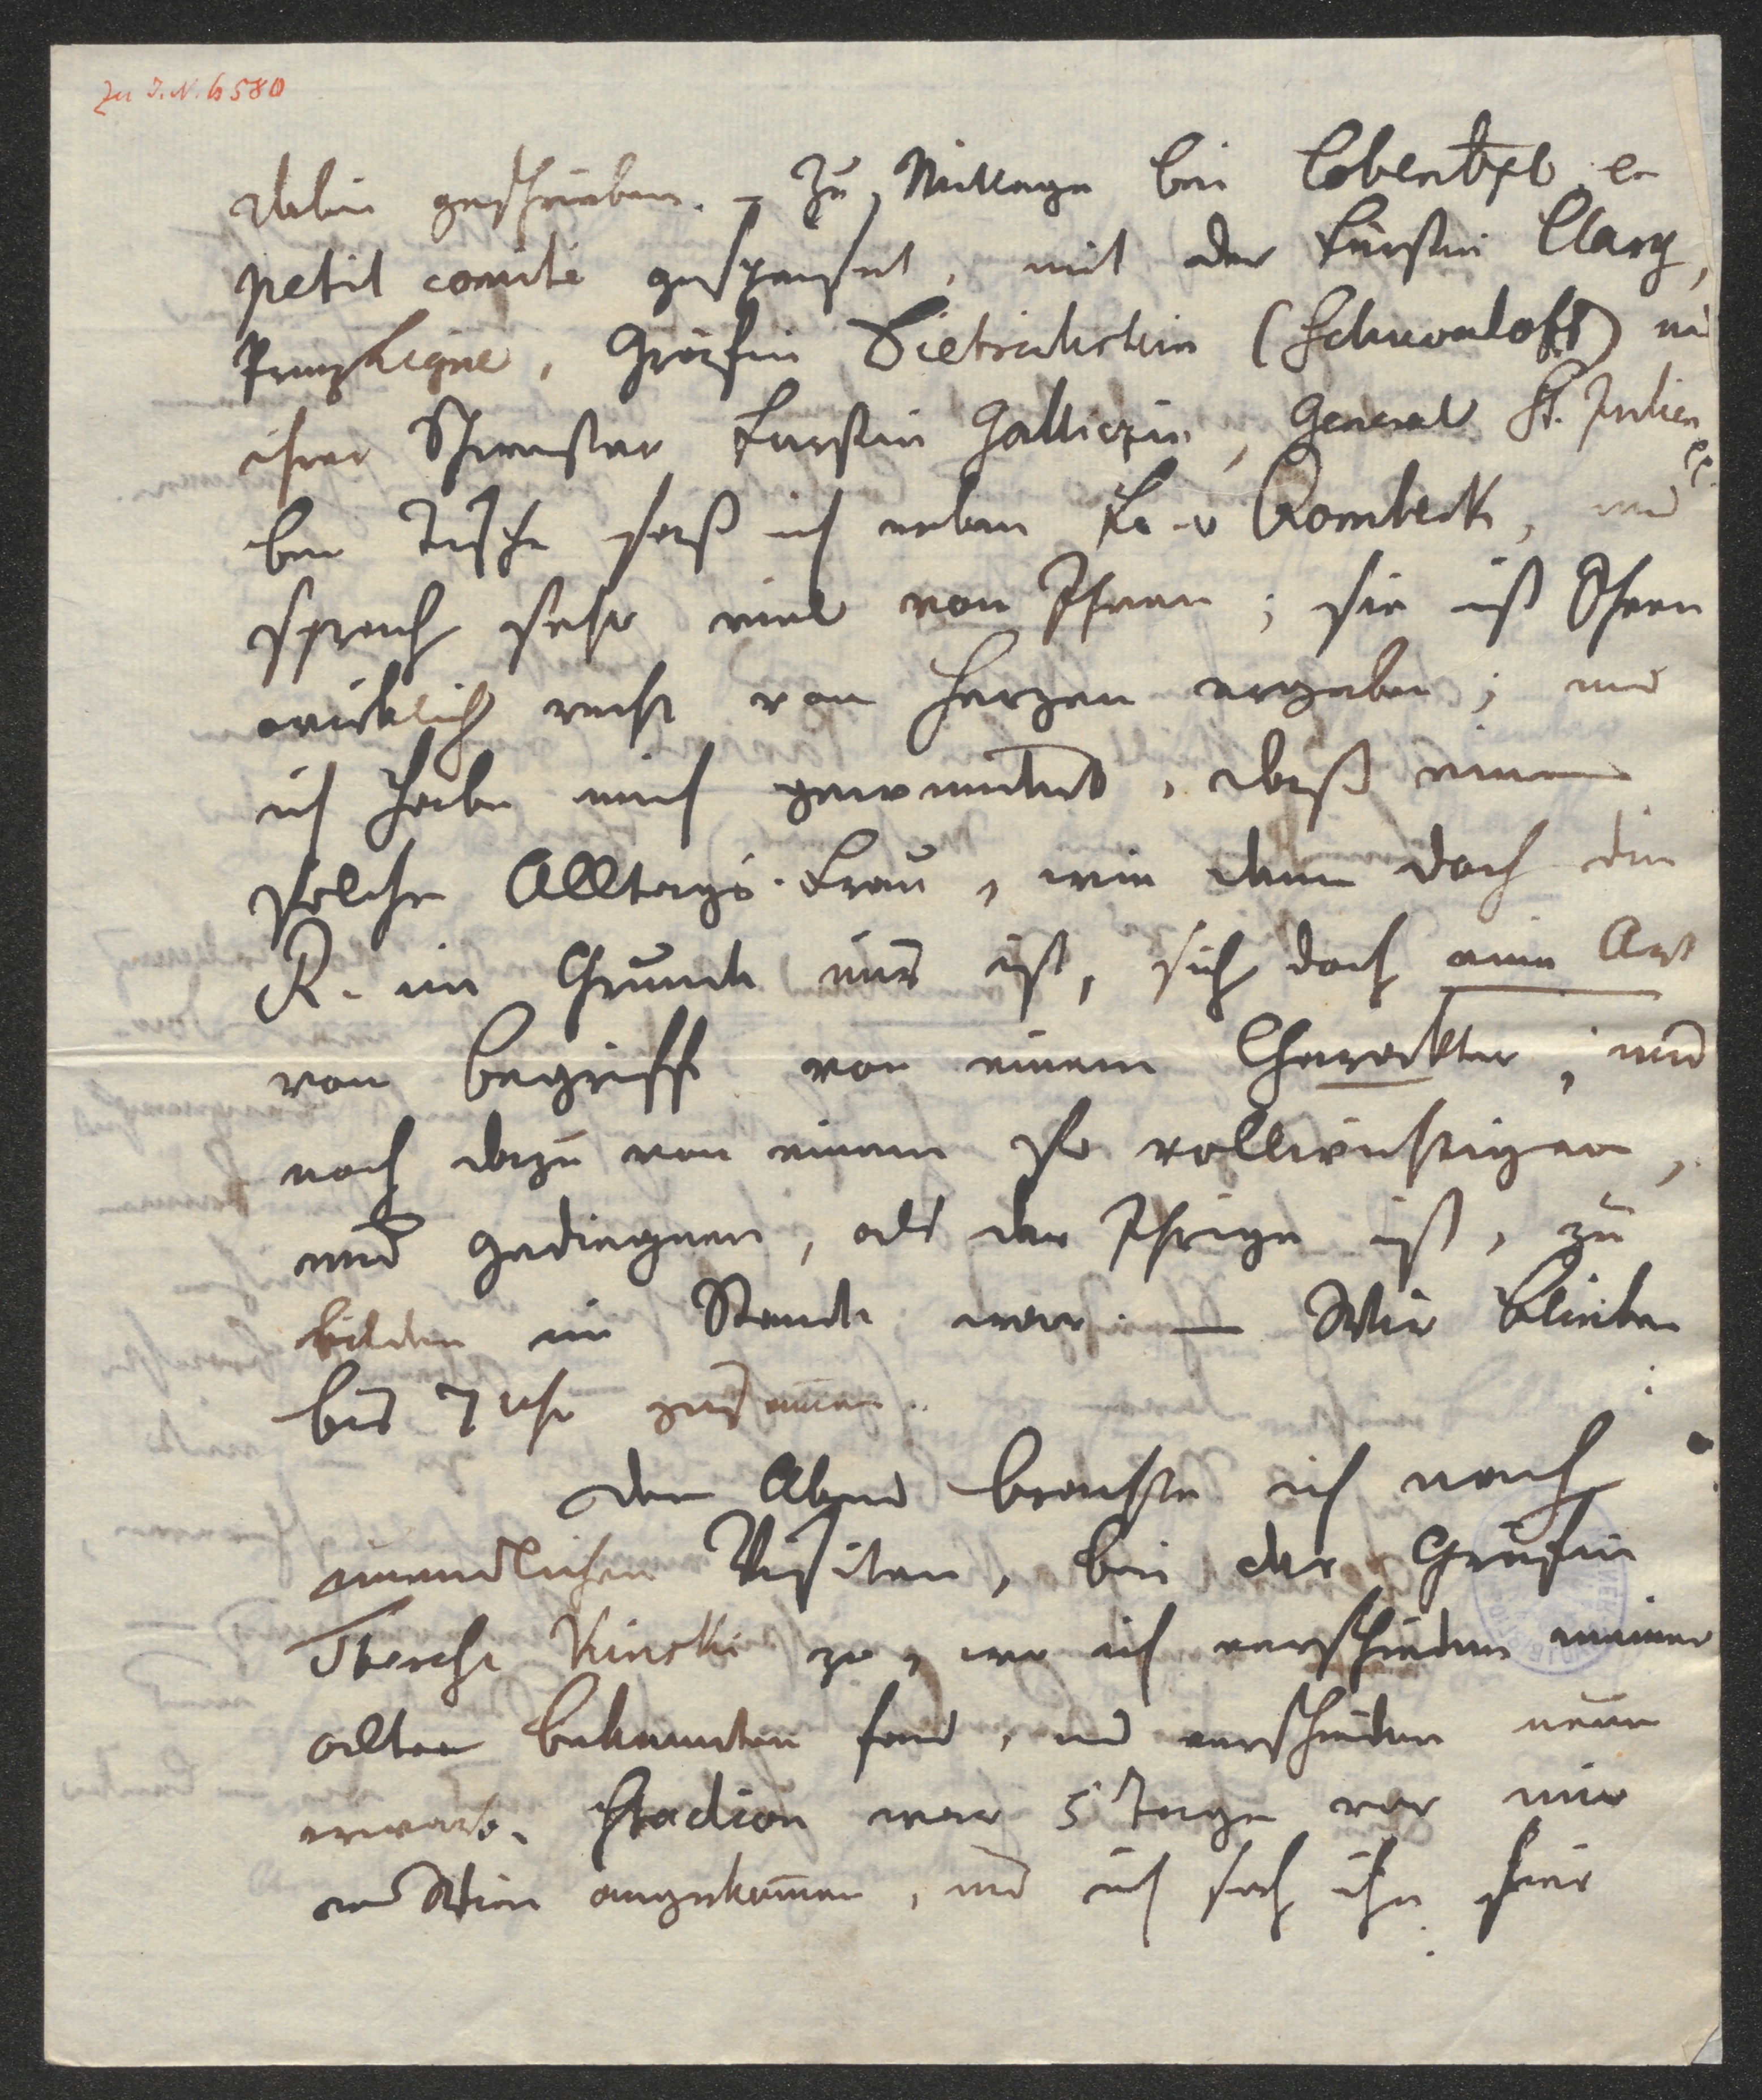 Zu I.N. 6580
dabei geschrieben. – Zu Mittage bei Cobentzl en
petit comité gespeiset, mit der Fürstin Clary,
Prinz Ligne, Gräfin Dietrichstein (Schuwaloff) und
ihrer Schwester Fürstin Gallizin, General St. Julien
bey Tische saß ich neben Fr. v Rombeck, und
sprach sehr viel von Ihnen; sie ist Ihnen
wirklich recht von Herzen ergeben; und
ich habe mich gewundert, daß eine
solche Alltags-Frau, wie denn doch die
R. im Grunde nur ist, sich doch eine Art
von Begriff von einem Charakter, und
noch dazu von einem so vollwichtigen,
und gediegnen, als der Ihrige ist, zu
bilden im Stande war. – Wir blieben
bis 7 Uhr zusam̄en.
Den Abend brachte ich nach
unendlichen Visiten, bei der Gräfin
Therese Kinski zu, wo ich verschiedne meiner
alten Bekannten fand, und verschiedne neue
erwarb. Stadion war 5 Tage vor mir
in Wien angekom̄en, und ich sah ihn hier